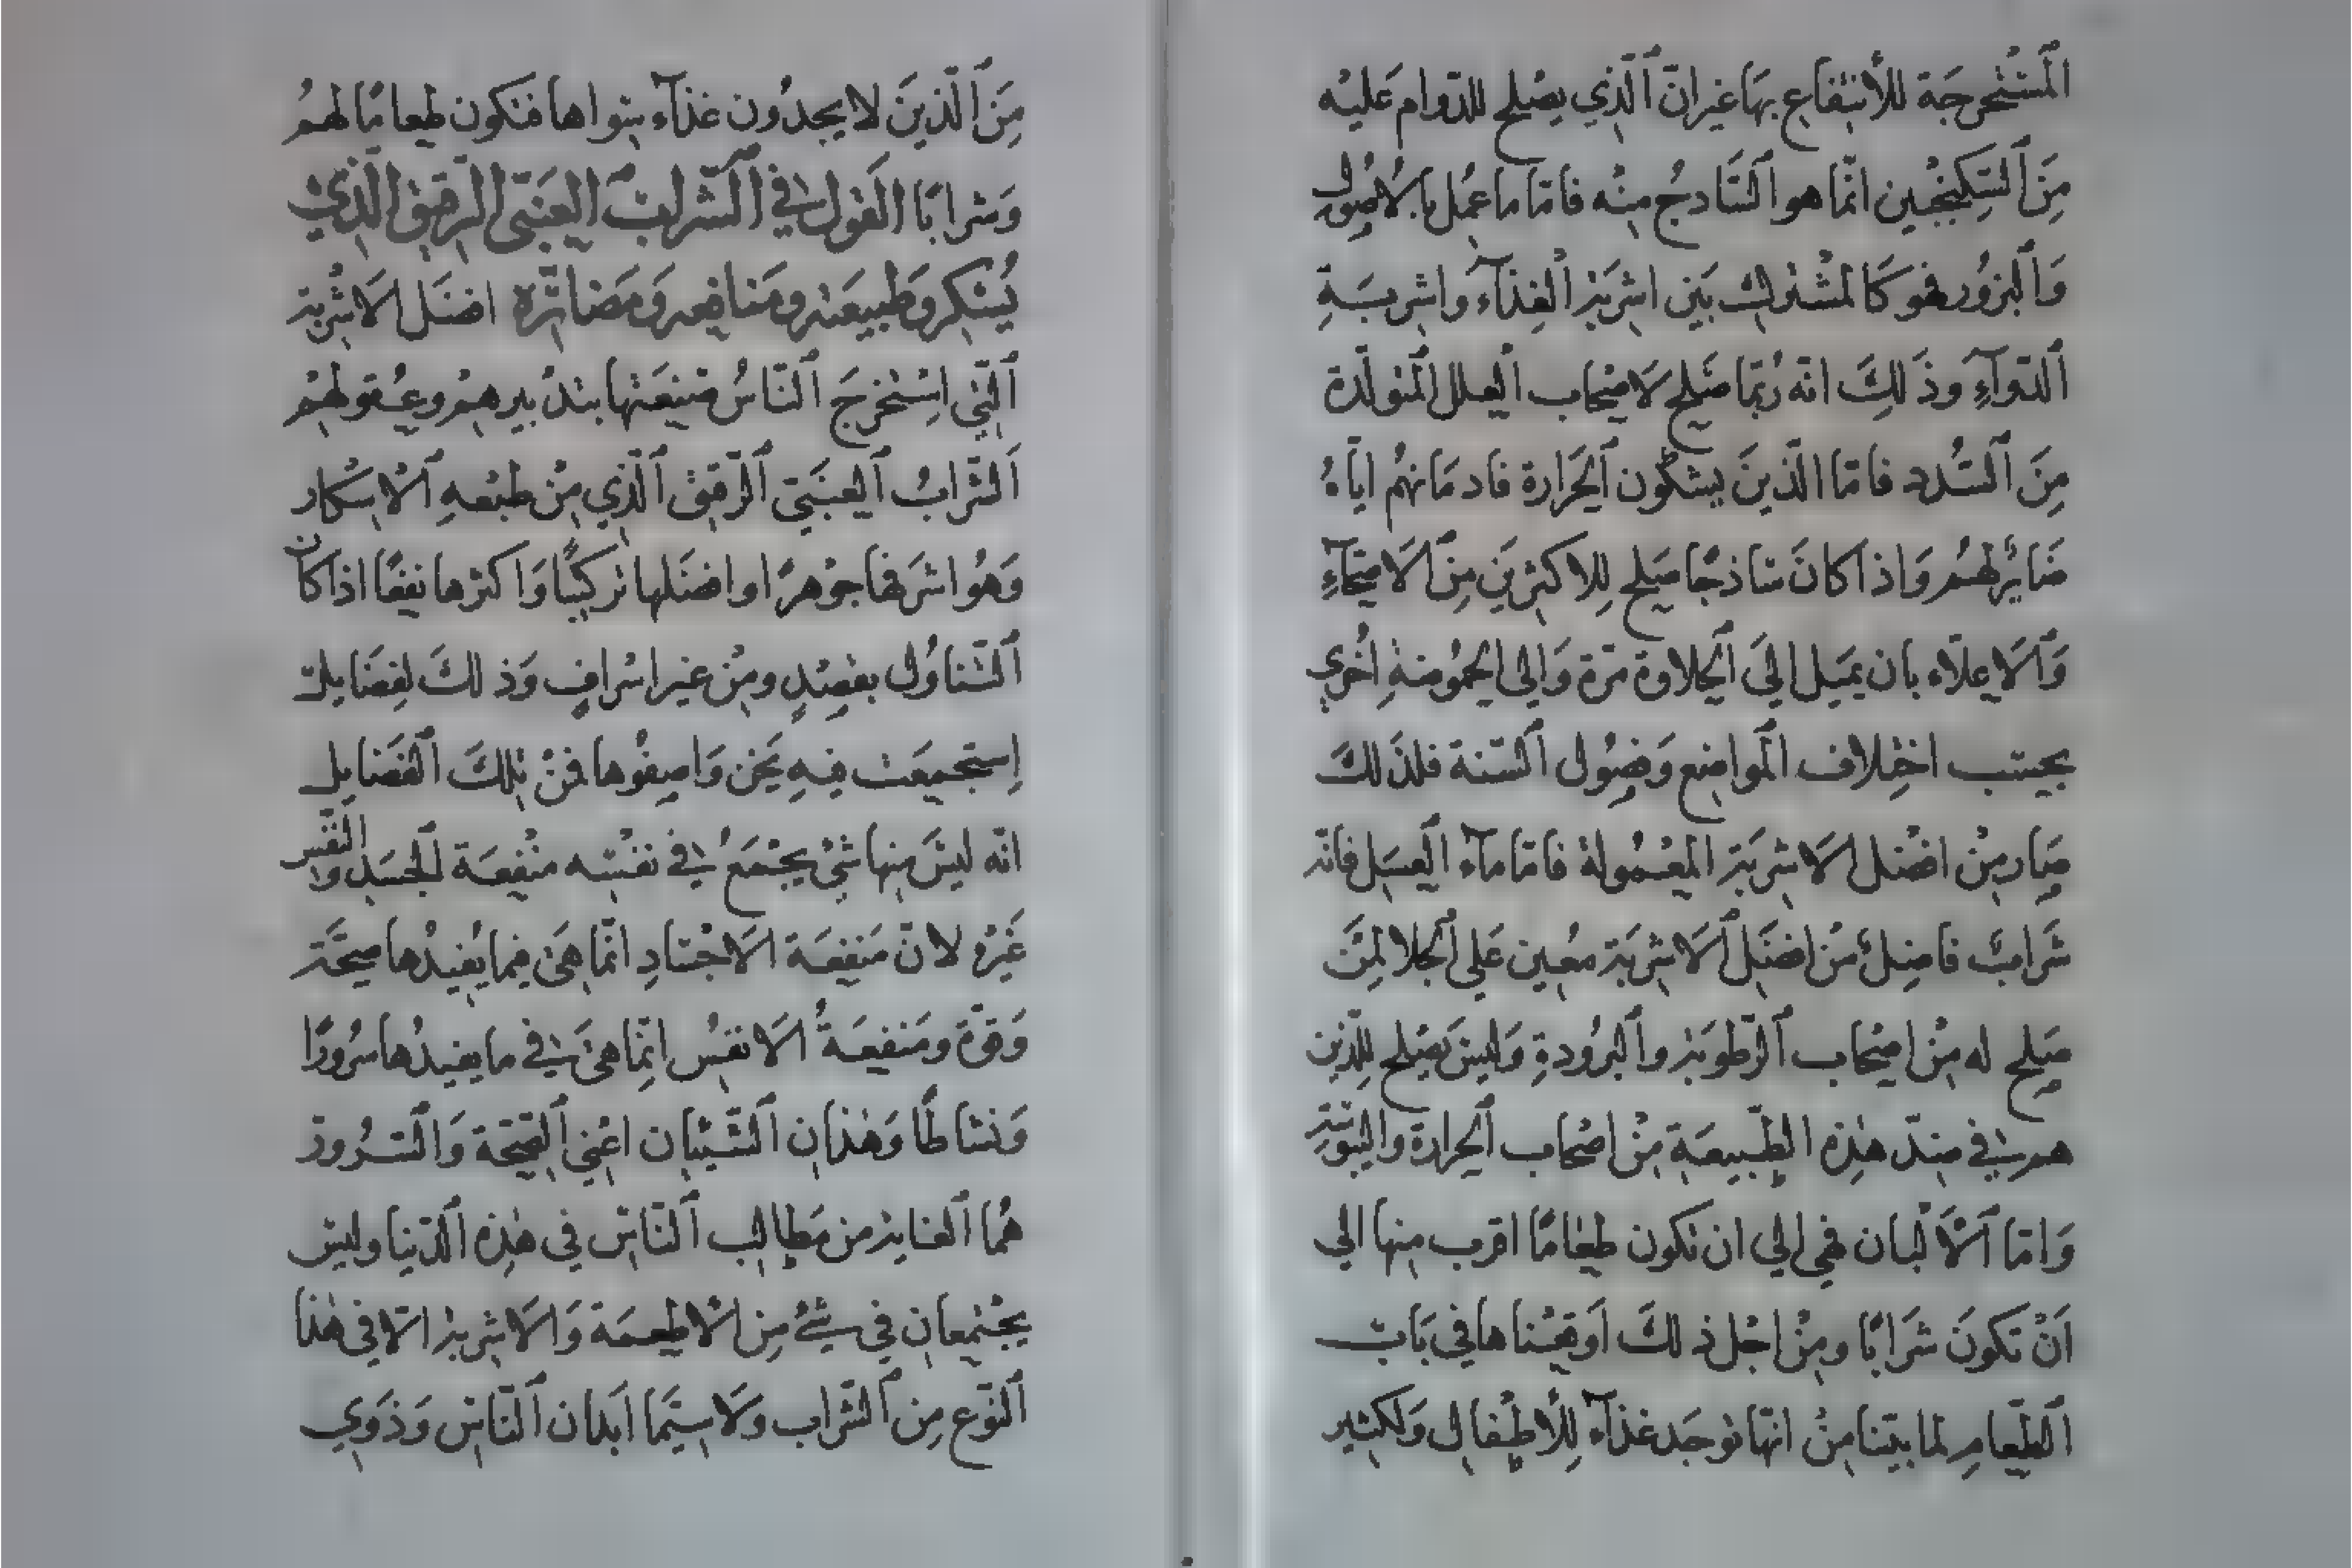 المستخرجة للأنتفاع بها غير انّ الّذي يصلح للدّوام عليه
من السّكنجبين انّما هو السّاذج منه فامّا ما عمل بالاصول
والبزور فهو كالمشترك بين اشربة الغذآء واشربة
الدّوآء وذلك انّه ربّما صلح لاصحاب العلل المتولّدة
من السّدد فامّا الّذين يشكون الحرارة فادمانهم ايّاه
ضائر لهم واذا كان ساذجا صلح للاكثرين من الاصحّآء
والاعلّاء بان يميل الى الحلاوة مرّة والى الحموضة اخرى
بحسب اختلاف المواضع وفصول السّنة فلذلك
صار من افضل الاشربة المعمولة فامّا مآء العسل فانّه
شراب فاضل من افضل الاشربة معين على الجلا لمن
صلح له من اصحاب الرّطوبة والبرودة وليس يصلح للّذين
هم في ضدّ هذه الطّبيعة من اصحاب الحرارة واليبوسة
وامّا الألبان فهي الي ان تكون طعاما اقرب منها الي
ان تكون شرابا ومن اجل ذلك اوقعناها في باب
الطّعام لما بيّنا من انّها توجد غذآء للأطفال ولكثير
من الّذين لا يجدون غذآء سواها فتكون طعاما لهم
وشرابا القول في الشّراب العنبيّ الرّقيق الّذي
يسكر وطبيعته ومنافعه ومضارّه افضل الاشربة
الّتي استخرج النّاس صنعتها بتدبيرهم وعقولهم
الشّراب العنبيّ الرّقيق الّذي من طبعه الاسكار
وهو اشرفها جوهرا وافضلها تركيبا واكثرها نفعا اذا كان
التّناول بقصد ومن غير اسراف وذلك لفضايل
استجمعت فيه نحن واصفوها فمن تلك الفضايل
انّه ليس منها شئ يجمع في نفسه منفعة الجسد والنّفس
غيره لانّ منفعة الاجساد انّما هي فيما يفيدها صحّة
وقوّة ومنفعة الانفس انّما هي في ما يفيدها سرورا
ونشاطا وهذان الشّيئان اعني الصّحّة والسّرور
هما الغاية من مطالب النّاس في هذه الدّنيا وليس
يجتمعان في شئ من الأطعمة والاشربة الّا في هذا
النّوع من الشّراب ولا سيّما ابدان النّاس وذوي